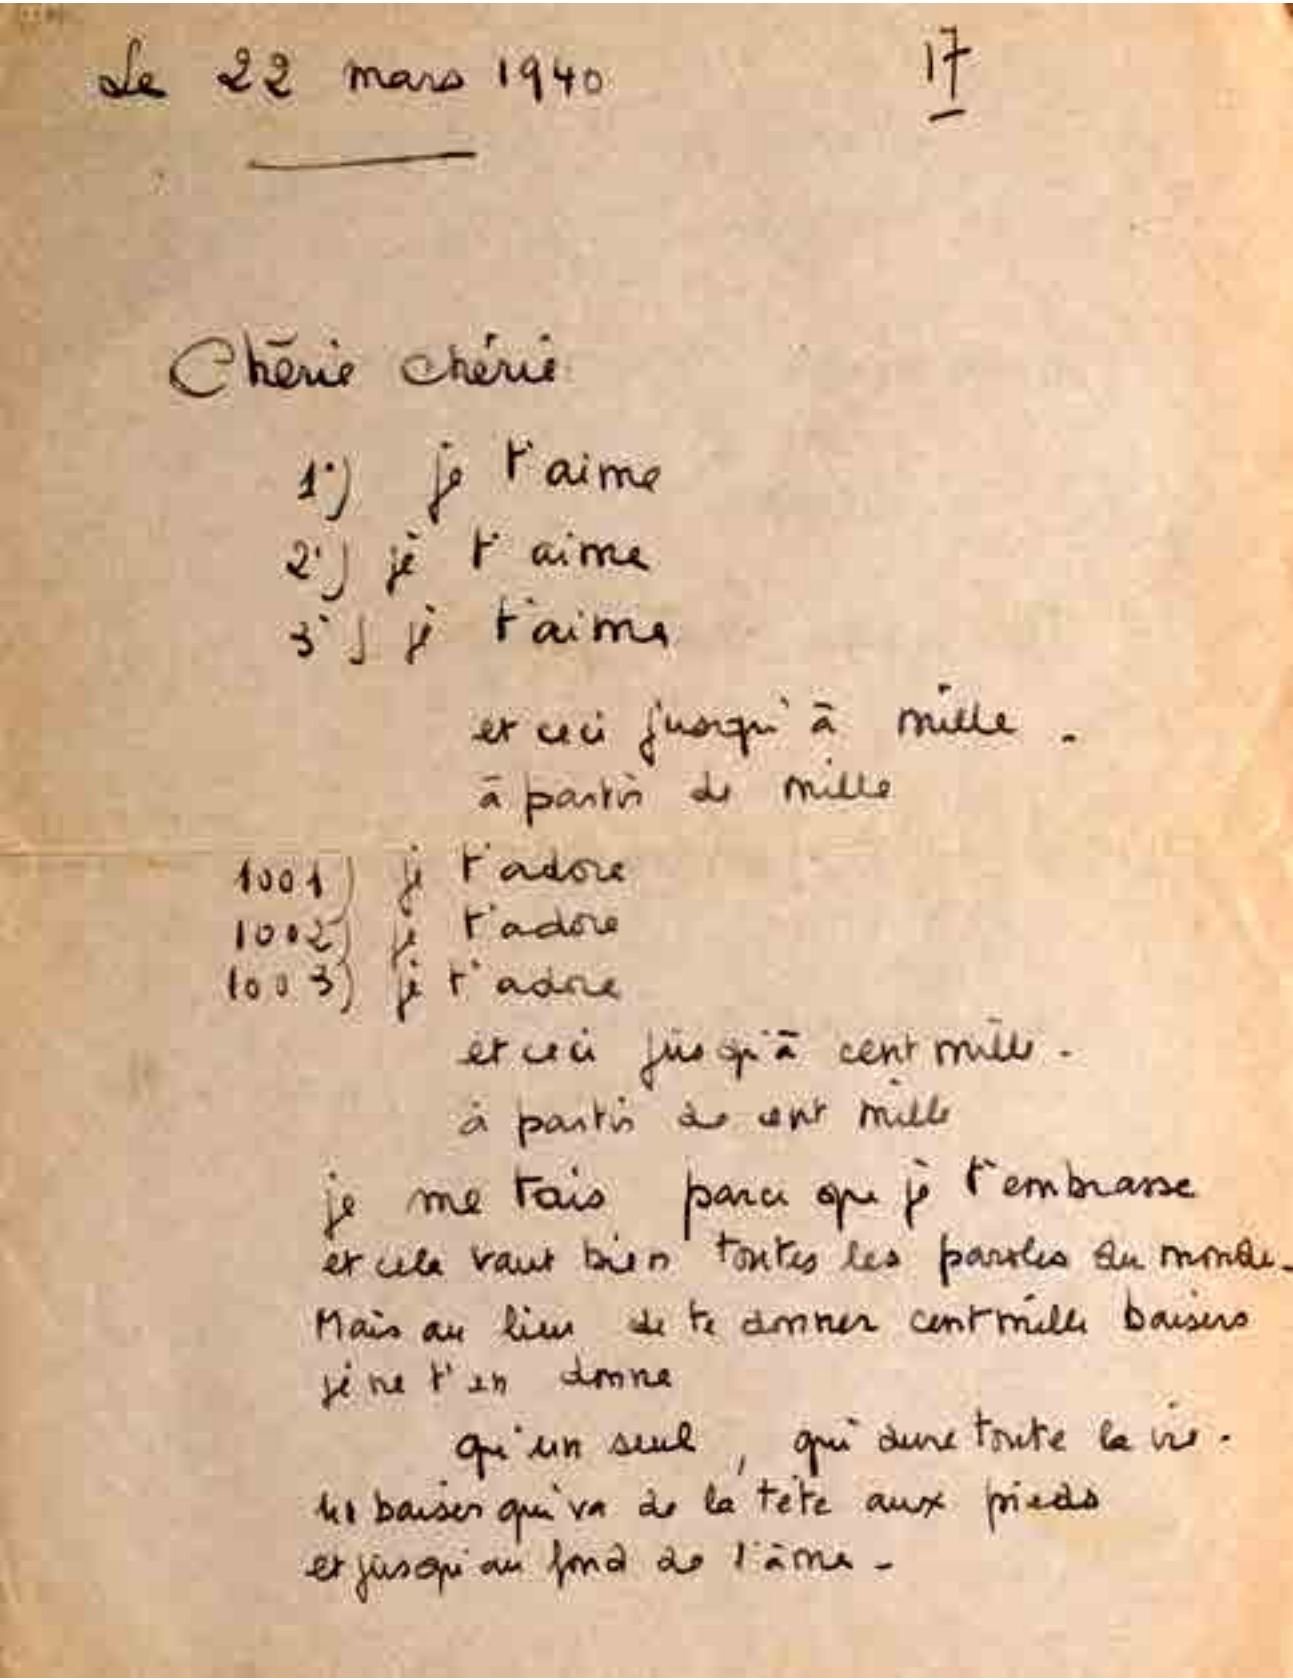 Le 22 mars 1940 17
Chérie chérie
1°) je t'aime
2°) je t'aime
3°) je t'aime
et ceci jusqu'à mille.
à partir de mille
1001) je t'adore
1002) je t'adore
1003) je t'adore
et ceci jusqu'à cent mille.
à partir de cent mille
je me tais parce que je t'embrasse
et cela vaut bien toutes les paroles du monde.
Mais au lieu de te donner cent mille baisers
je ne t'en donne
qu'un seul, qui dure toute la vie.
un baiser qui va de la tête aux pieds
et jusqu'au fond de l'âme.